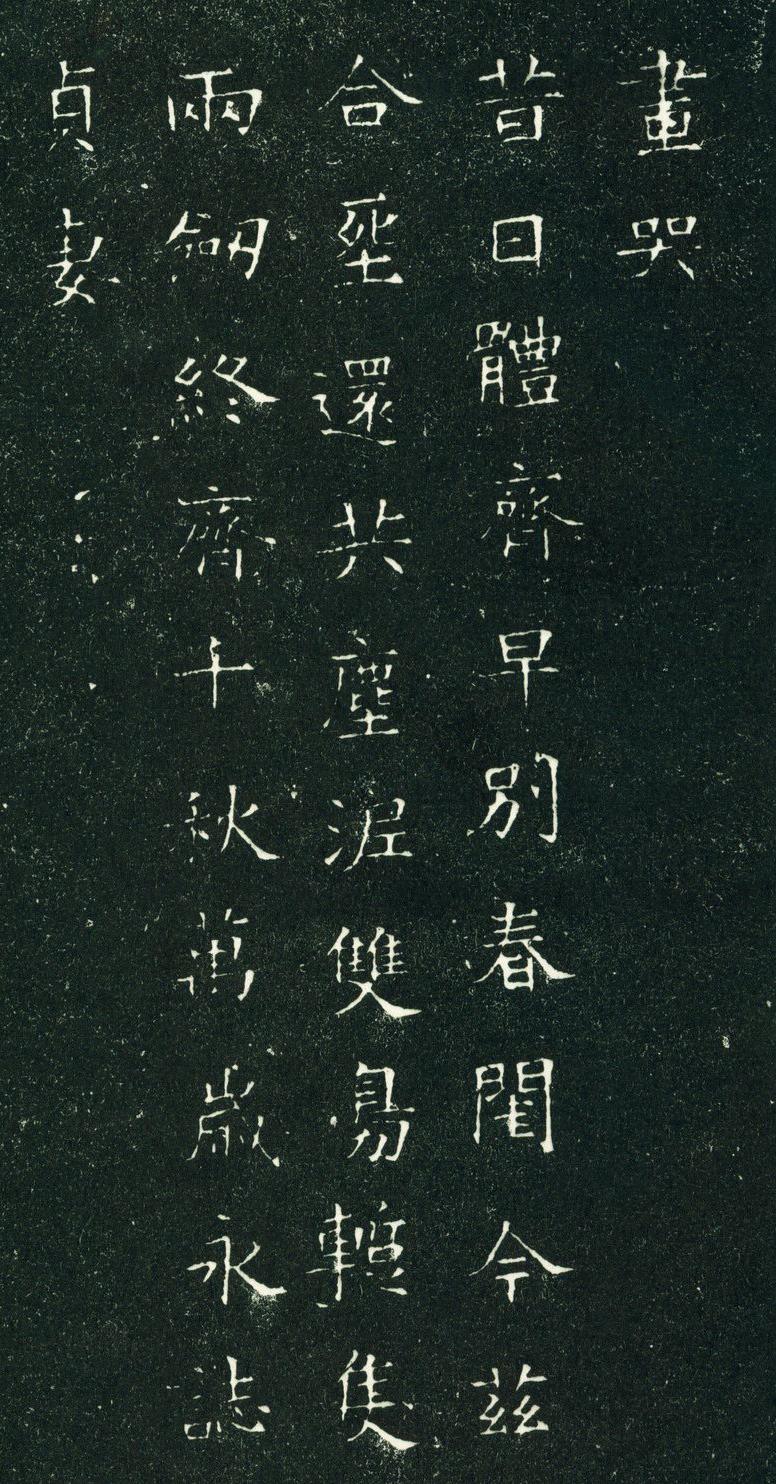 晝哭
昔日體齊早別春閨今茲
合葬還共塵泥雙鳧暫隻
兩劒終齊千秋萬歲永誌
貞妻